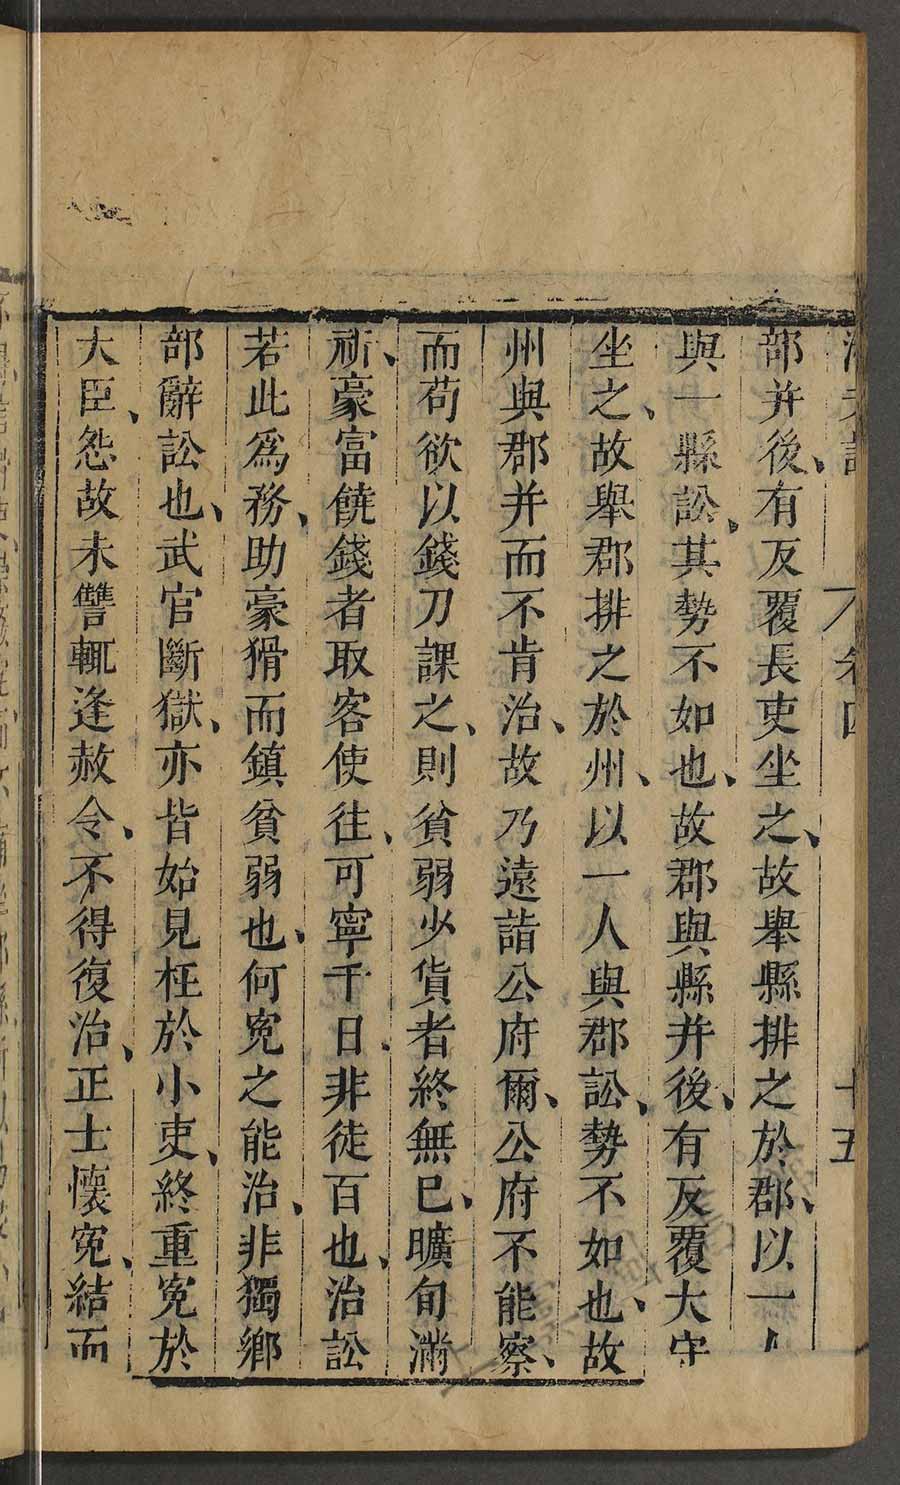 卷四 十五
部并後、有反覆長吏坐之、故舉縣排之於郡、以一人
與一縣訟、其勢不如也、故郡與縣并後、有反覆大守
坐之、故舉郡排之於州、以一人與郡訟、勢不如也、故
州與郡并而不肯治、故乃遠詣公府爾、公府不能察、
而苟欲以錢刀課之、則貧弱少貨者終無已、曠旬滿
祈、豪富饒錢者取客使往、可寧千日、非徒百也、治訟
若此爲務、助豪猾而鎮貧弱也、何寃之能治、非獨鄉
部辭訟也、武官斷獄、亦皆始見枉於小吏、終重寃於
大臣、怨故未讐輒逢赦令、不得復治、正士懷寃、結而